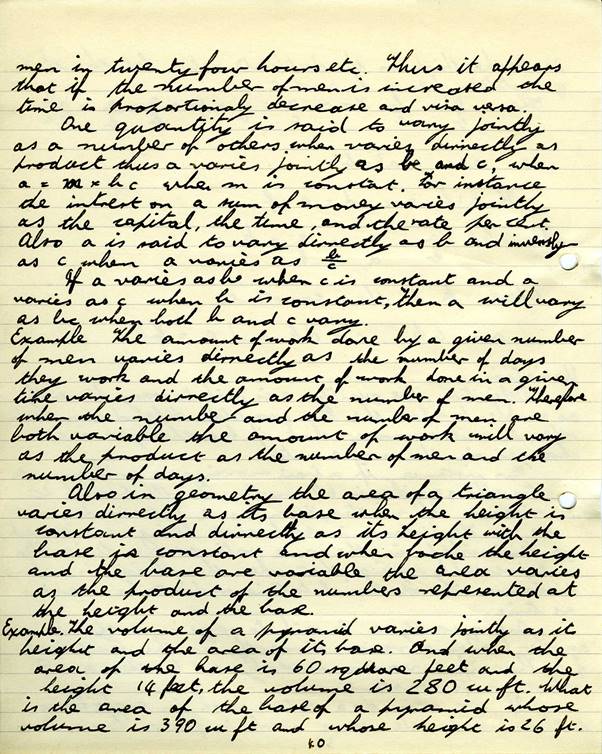 men in twenty four hours etc. Thus it appears
that if the number of men is increased the
time is proportionaly decrease and visa versa.
One quantity is said to vary jointly
as a number of others when varies dirrectly as
product thus a varies jointly as b and c, when
a = m × b c when m is constat. For instance
the intrest on a sum of money varies jointly
as the capital, the time, and the rate per cent.
Also a is said to vary dirrectly as b and inversly
as c when a varies as b/c
If a varies as b when c is constant and a
varies as c when b is constant, then a will vary
as bc when both b and c vary.
Example The amount of work done by a given number
of men varies dirrectly as the number of days
they work and the amount of work done in a given
time varies dirrectly as the number of men. Therefore
when the number and the number of men are
both variable the amount of work will vary
as the product as the number of men and the
number of days.
Also in geometry the area of a triangle
varies dirrectly as its base when the height is
constant and dirrectly as its height with the
base is constant and when the height
and the base are variable the area varies
as the product of the numbers represented at
the height and the base.
Example. The volume of a pyramid varies jointly as it
height and the area of its base. And when the
area of the base is 60 sqduare feet and the
height 14 feet, the volume is 280 cu ft. What
is the area of the base of a pyramid whose
volume is 390 cu ft and whose height is 26 ft.
10